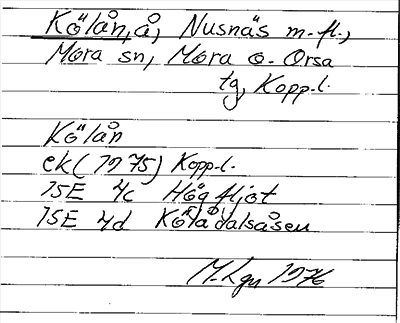 Kölån, å, Nusnäs m.fl.,
Mora sn, Mora o. Orsa
tg, Kopp.l.
Kölån
ek (1975) Kopp.l.
15E 4c Högfljot
15E 4d Kölådalsåsen
M. Lgn 1976